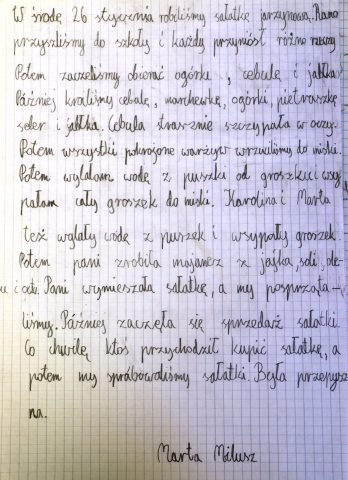 W środę 26 stycznia robiliśmy sałatkę jarzynową. Rano
przyszliśmy do szkoły i każdy przyniósł różne rzeczy
Potem zaczeliśmy obierać ogórki, cebule i jabłka
Później kroiliśmy cebule, marchewkę, ogórki, pietruszkę
seler i jabłka. Cebula strasznie szczypała w oczy.
Potem wszystkie pokrojone warzywa wrzuciliśmy do miski.
Potem wylałam wodę z puszki od groszku i wsy-
pałam cały groszek do miski. Karolina i Marta
też wylały wodę z puszek i wsypały groszek.
Potem pani zrobiła majonez z jajka, soli, ole-
ju i octu. Pani wymieszała sałatkę, a my posprząta-
liśmy. Później zaczęła się sprzedaż sałatki.
Co chwilę ktoś przychodził kupić sałatkę, a
potem my spróbowaliśmy sałatki. Była przepysz
na.
Marta Milusz